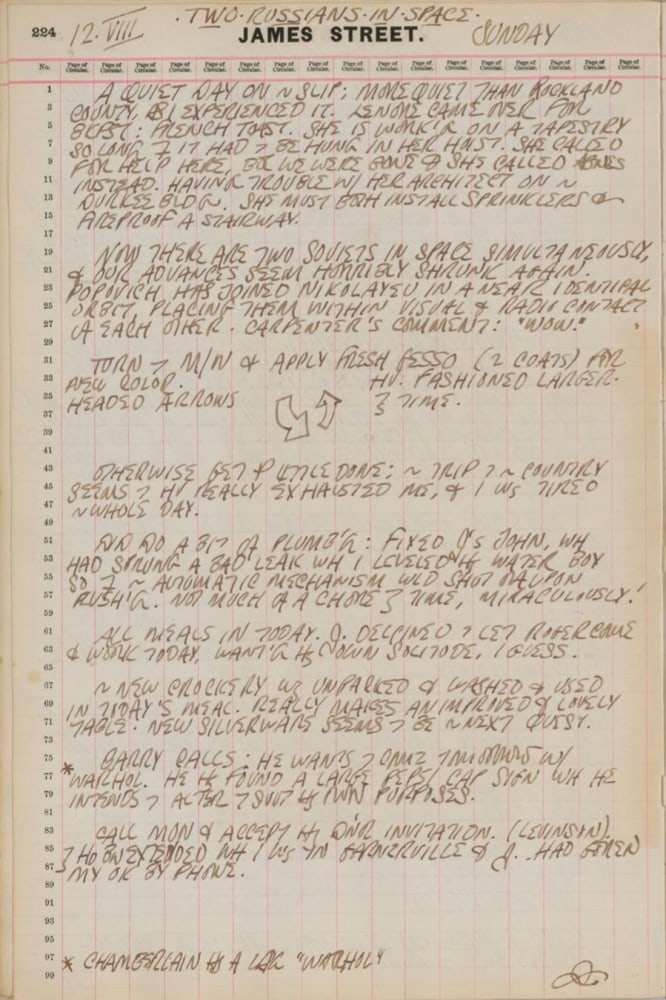 · TWO · RUSSIANS · IN · SPACE ·
224 12 · VIII JAMES STREET. SUNDAY
No. Page of Circular. Page of Circular. Page of Circular. Page of Circular. Page of Circular. Page of Circular. Page of Circular. Page of Circular. Page of Circular. Page of Circular. Page of Circular. Page of Circular. Page of Circular. Page of Circular. Page of Circular. Page of Circular. Page of Circular. Page of Circular.
1 A QUIET DAY ON ~ SLIP; MORE QUIET THAN ROCKLAND
3 COUNTY, AS I EXPERIENCED IT. LENORE CAME OVER FOR
5 BKFST: FRENCH TOAST. SHE IS WORK'G ON A TAPESTRY
7 SO LONG IT HAD 7 BE HUNG IN HER HOIST. SHE CALLED
9 FOR HELP HERE, BUT WE WERE GONE & SHE CALLED
11 INSTEAD. HAVING TROUBLE W/ HER ARCHITECT ON ~
13 DURKEE BLDG. SHE MUST BOTH INSTALL SPRINKLERS &
15 FIREPROOF A STAIRWAY.
17
19 NOW THERE ARE TWO SOVIETS IN SPACE SIMULTANEOUSLY,
21 & OUR ADVANCES SEEM HORRIBLY SHRUNK AGAIN.
23 POPOVICH HAS JOINED NIKOLAYEV IN A NEAR IDENTICAL
25 ORBIT, PLACING THEM WITHIN VISUAL & RADIO CONTACT
27 OF EACH OTHER. CARPENTER'S COMMENT: "WOW."
29
31 TURN 7 M/N & APPLY FRESH GESSO (2 COATS) FOR
33 NEW COLOR. HV. FASHIONED LARGER-
35 HEADED ARROWS 3 TIME.
37
39
41
43 OTHERWISE GET LITTLE DONE; ~ TRIP 7 ~ COUNTRY
45 SEEMS 7 HV REALLY EXHAUSTED ME, & I WS TIRED
47 ~ WHOLE DAY.
49
51 DID DO A BIT OF PLUMB'G: FIXED J'S JOHN, WH
53 HAD SPRUNG A BAD LEAK WH I LEVELED ~ WATER BOX
55 SO ~ AUTOMATIC MECHANISM WLD SHUT OFF UPON
57 RUSH'G. NOT MUCH OF A CHORE 3 TIME, MIRACULOUSLY!
59
61 ALL MEALS IN TODAY. J. DECLINED 7 LET ROGER COME
63 & WORK TODAY, WANT'G HS OWN SOLITUDE, I GUESS.
65
67 ~ NEW CROCKERY WS UNPACKED & WASHED & USED
69 IN TODAY'S MEAL. REALLY MAKES AN IMPROVED & LOVELY
71 TABLE. NEW SILVERWARE SEEMS 7 BE ~ NEXT QUEST.
73
75 * BARRY CALLS: HE WANTS 7 COME TOMORROW W/
77 WARHOL. HE HS FOUND A LARGE PEPSI CAP SIGN WH HE
79 INTENDS 7 ALTER 7 SUIT HS OWN PURPOSES.
81
83 CALL MON & ACCEPT HS DINR INVITATION. (LEVINSON)
85 3 HD BN EXTENDED WH I WS IN GARNERVILLE & J. HAD GIVEN
87 MY OK BY PHONE.
89
91
93
95
97 * CHAMBERLAIN HS A LRG "WARHOL"
99